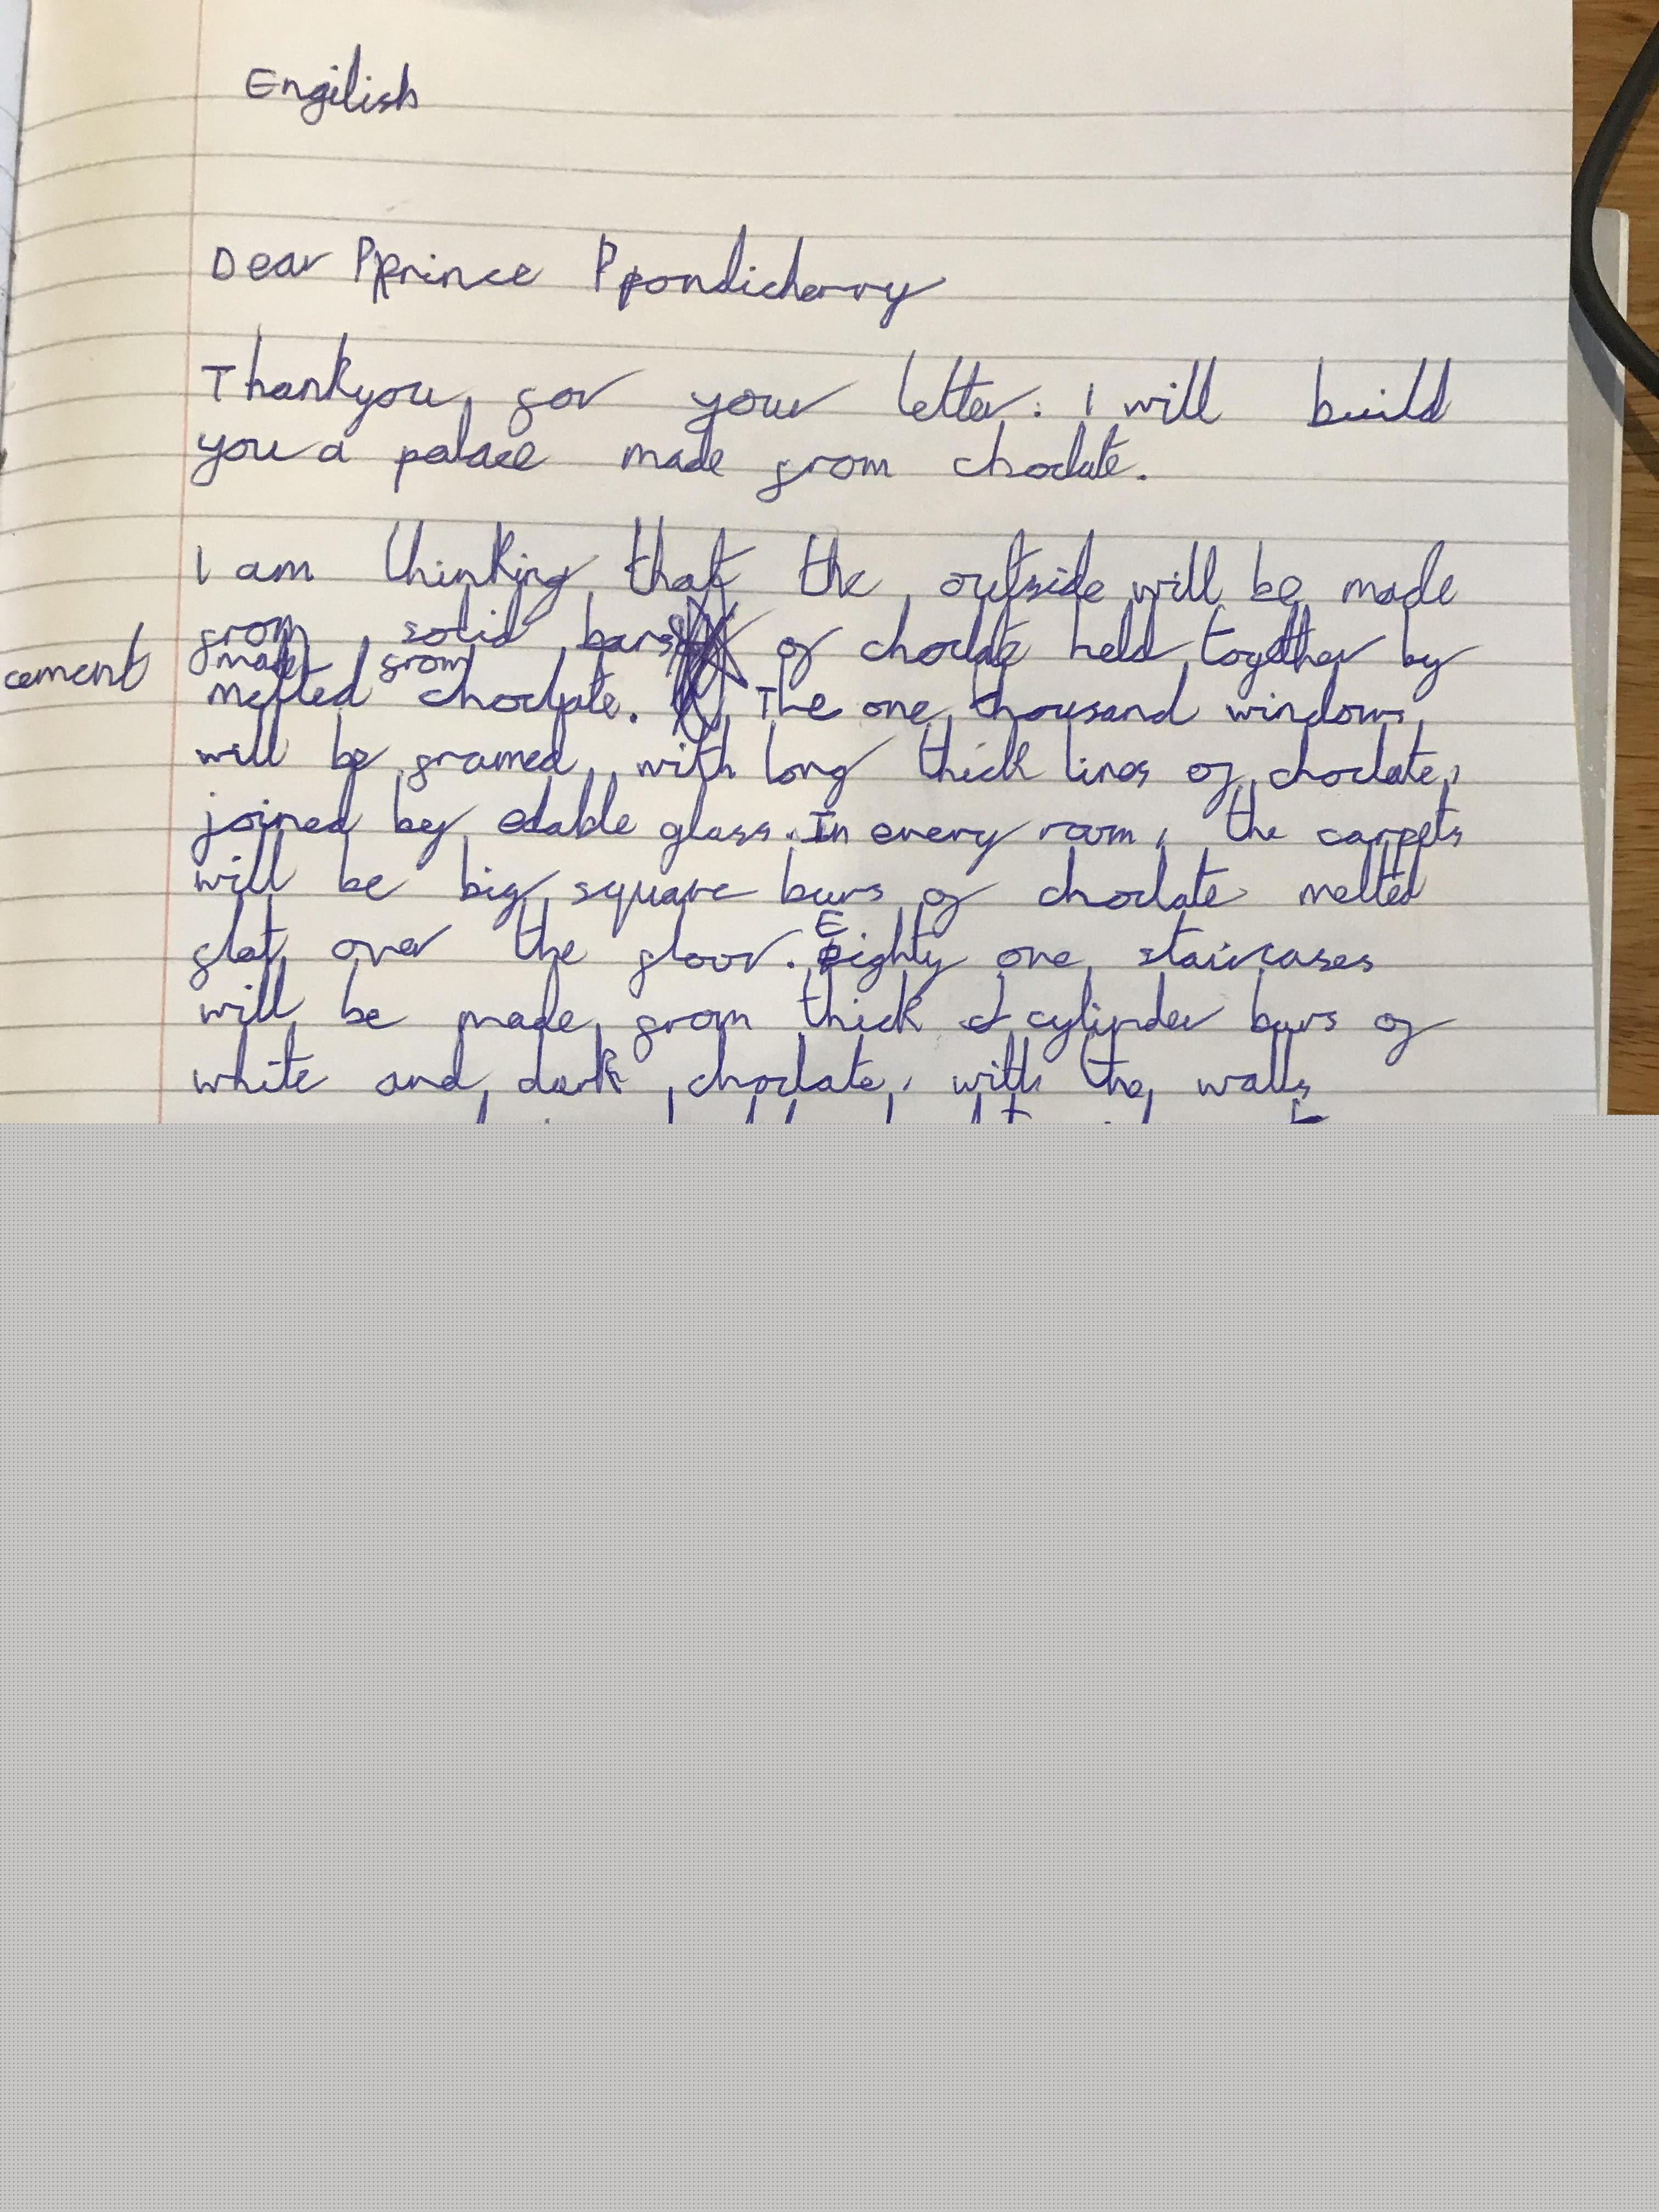 Engilish
Dear Pprince Ppondicherry
Thankyou for your letter. I will build
you a palace made from choclate.
I am thinking that the outside will be made
from solid bars of choclate held together by
cement made from
melted choclate. The one thousand windows
will be framed with long thick lines of choclate,
joined by edable glass. In every room, the carpets
will be big square bars of choclate melted
flat over the floor. Eighty one staircases
will be made from thick cylinder bars of
white and dark choclate, with the walls